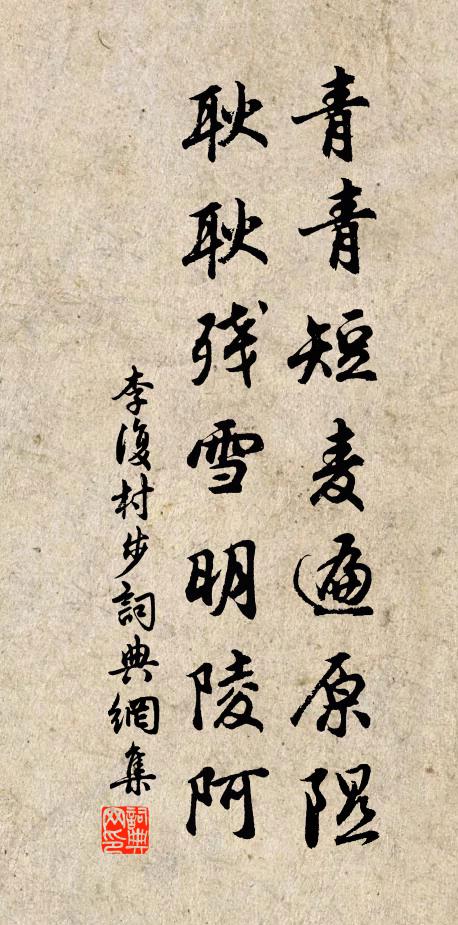 青青短麦遍原隰
耿耿残雪明陵阿
李復村步詞典網集
詞典网印